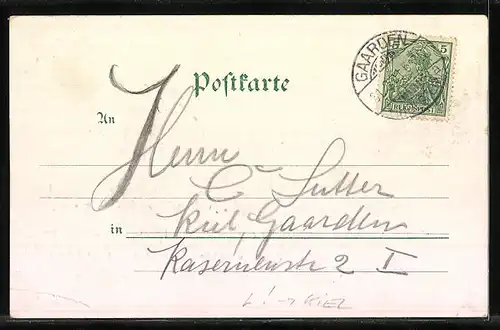 GAARDEN
5
REICHSPOST
Postkarte
An
Herrn
C Sutter
in Kiel, Gaarden
Kasernenstr 2 I
L! → KIEL